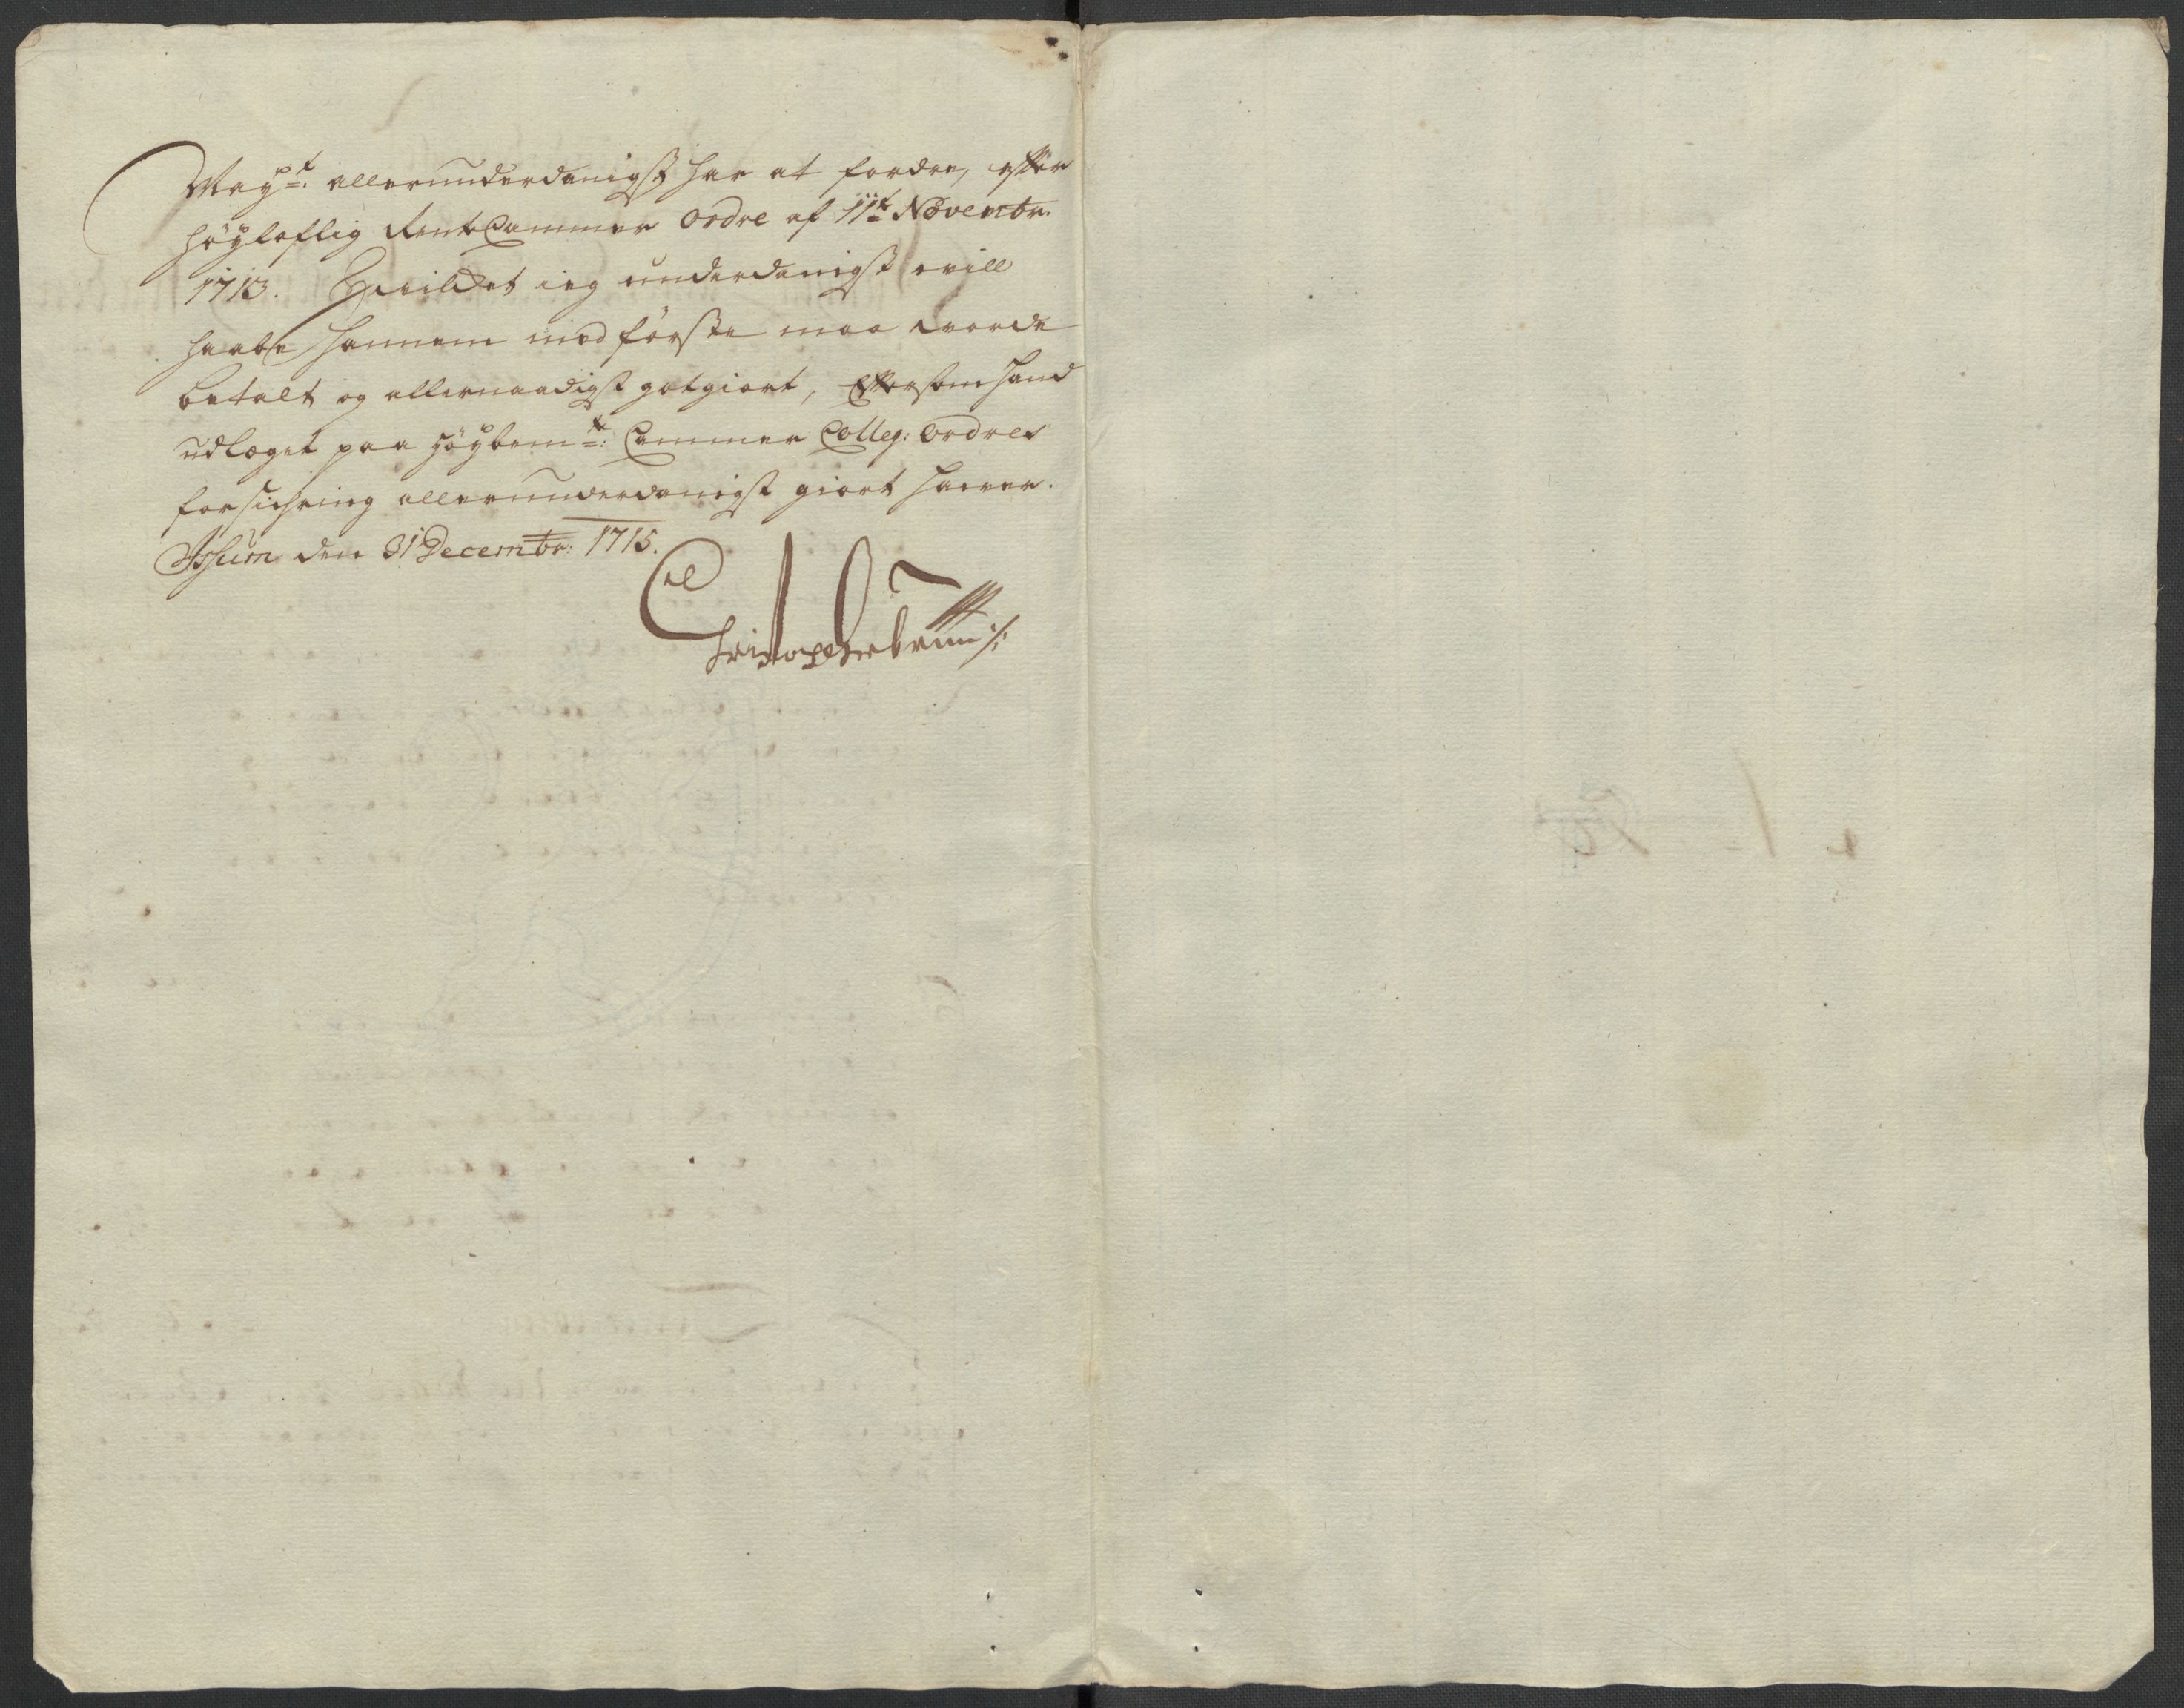 Mayt: allerunderdanigst har at fordre, efter
höyloflig RentCammer Ordre af 11te Novembr.
1713. Hvilchet ieg underdanigst vill
haabe hannem med förste maa vorde
betalt og allernaadigst gotgiort, Efftersom hand
udlæget paa Höybemte: Cammer Colleg: Ordres
forsichring allerunderdanigst giort haever.
den 31 Decembr: 1715.
Christopher